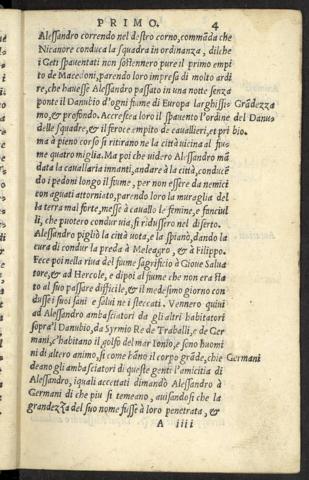 PRIMO. 4
Alessandro correndo nel destro corno, commāda che
Nicanore conduca la squadra in ordinanza, dilche
i Geti spauentati non sostennero pure il primo empi
to de Macedoni, parendo loro impresa di molto ardi
re, che hauesse Alessandro passato in una notte senza
ponte il Danubio d'ogni fiume di Europa larghissi Grādezza
mo, & profondo. Accresceа loro il spauento l'ordine del Danu
delle squadre, & il feroce empito de cauallieri, et pri bio.
ma à pieno corso si ritirano ne la città uicina al fiu-
me quatro miglia. Ma poi che uidero Alessandro mā
data la cauallaria innanti, andare à la città, conducē
do i pedoni longo il fiume, per non essere da nemici
con aguati attorniato, parendo loro la muraglia del
la terra mal forte, messe à cauallo le femine, e fanciul
li, che puotero condur uia, si ridussero nel diserto.
Alessandro pigliò la città uota, e la spianò, dando la
cura di condur la preda à Meleagro, & à Filippo.
Ecce poi nella riua del fiume sagrificio à Gioue Salua
tore, & ad Hercole, e dipoi al fiume che non era sta
to al suo passare difficile, & il medesimo giorno con
dusse i suoi sani e salui ne i steccati. Vennero quiui
ad Alessandro ambasciatori da gli altri habitatori
sopra'l Danubio, da Syrmio Re de Traballi, e de Ger
mani, c'habitano il golfo del mar Ionio, e sono huomi
ni di altero animo, si come hāno il corpo grāde, chie Germani
deano gli ambasciatori di queste genti l'amicitia di
Alessandro, iquali accettati dimandò Alessandro à
Germani di che piu si temeano, auisandosi che la
grandezza del suo nome fusse à loro penetrata, &
A iiii